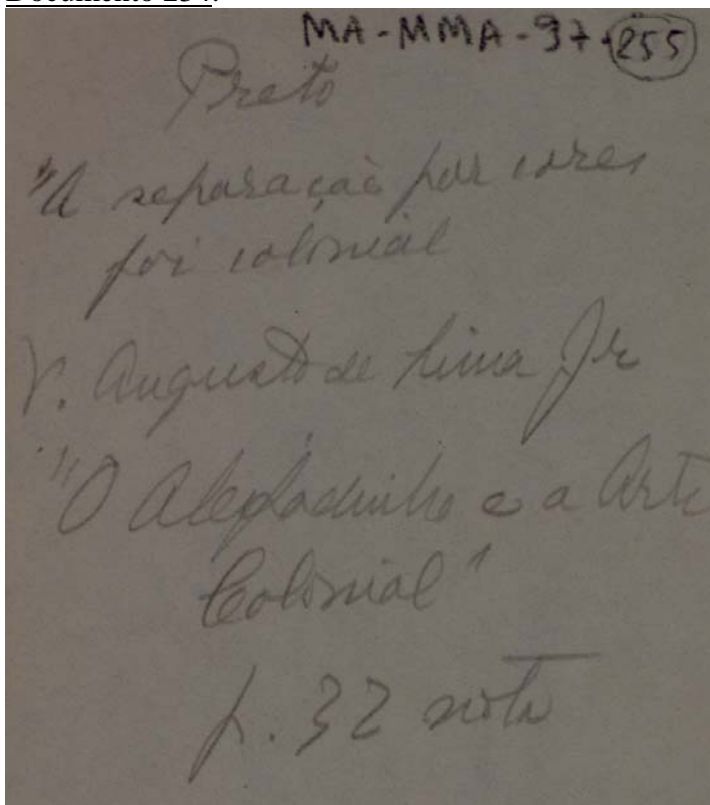 Documento 254:
MA-MMA-97-255
Preto
"A separação por cores
foi colonial
V. Augusto de Lima Jr
"O Aleijadinho e a Arte
Colonial"
p. 32 nota